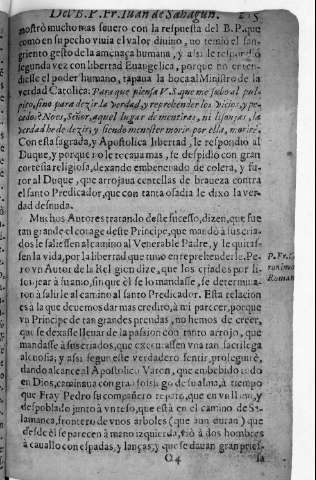 Del B. P. Fr. Iuan de Sahagun. 215
mostrò mucho mas seuero con la respuesta del B.P. que
como en su pecho viuia el valor diuino, no temiò el san-
griento gesto de la amenaça humana, y assi le respondiò
segunda vez con libertad Euangelica, porque no enten-
diesse el poder humano, tapaua la boca al Ministro de la
verdad Catolica. Para que piensa V.S. que me subo al pul-
pito, sino para dezir la verdad, y reprehender los vicios, y pe-
cados? No es, Señor, aquel lugar de mentiras, ni lisonjas, la
verdad he de dezir, y siendo menester morir por ella, morirè.
Con esta sagrada, y Apostolica libertad, le respondiò al
Duque, y porque no le tocaua mas, se despidio con gran
cortesia religiosa, dexando embebenado de colera, y fu-
ror al Duque, que arrojaua centellas de braueza contra
el santo Predicador, que con tanta osadia le dixo la ver-
dad desnuda.
Muchos Autores tratando deste sucesso, dizen, que fue
tan grande el corage deste Principe, que mandò a sus cria-
dos le saliessen al camino al Venerable Padre, y le quitas-
sen la vida, por la libertad que tuuo en reprehenderle. Pe-
ro vn Autor de la Religion dize, que los criados por li-
sonjear à su amo, sin que èl se lo mandasse, se determina-
ron à salirle al camino al santo Predicador. Esta relacion
es à la que deuemos dar mas credito, à mi parecer, porque
vn Principe de tan grandes prendas, no hemos de creer,
que se dexasse lleuar de la passion con tanto arrojo, que
mandasse à sus criados, que executassen vna tan sacrilega
aleuosia; y assi segun este verdadero sentir, proseguirè,
dando alcance al Apostolico Varon, que embebido todo
en Dios, caminaua con gran sossiego de su alma, à tiempo
que Fray Pedro su compañero reparò, que en vn llano, y
despoblado junto à vn teso, que està en el camino de Sa-
lamanca, frontero de vnos arboles (que aun duran) que
desde èl se parecen à mano izquierda, viò à dos hombres
à cauallo con espadas, y lanças, y que se dauan gran pries-
O 4 sa
P. Fr.
Roman